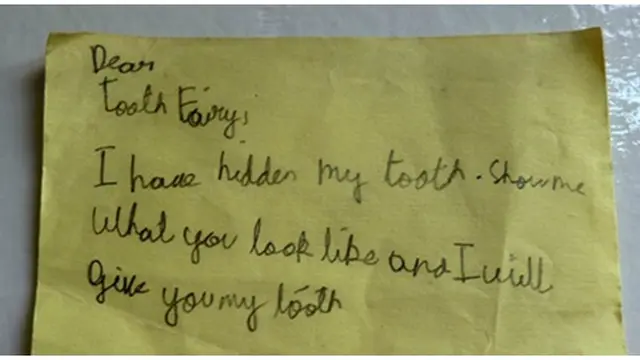 Dear
Tooth Fairy,
I have hidden my tooth. Show me
What you look like and I will
give you my tooth